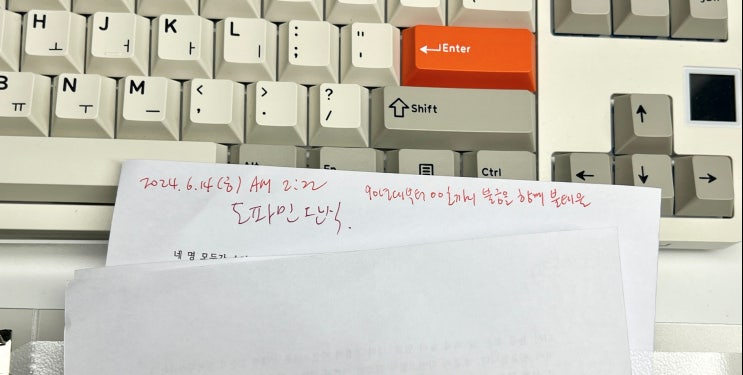 H ㅗ J ㅓ K ㅏ L ㅣ : ; " ' Enter
B ㅠ N ㅜ M ㅡ < , > . ? / Shift
Alt Fn Ctrl
2024.6.14(금) AM 2:22
90년대부터 00일까지 불금을 함께 불태울
도파민 단식.
네 명 모두가